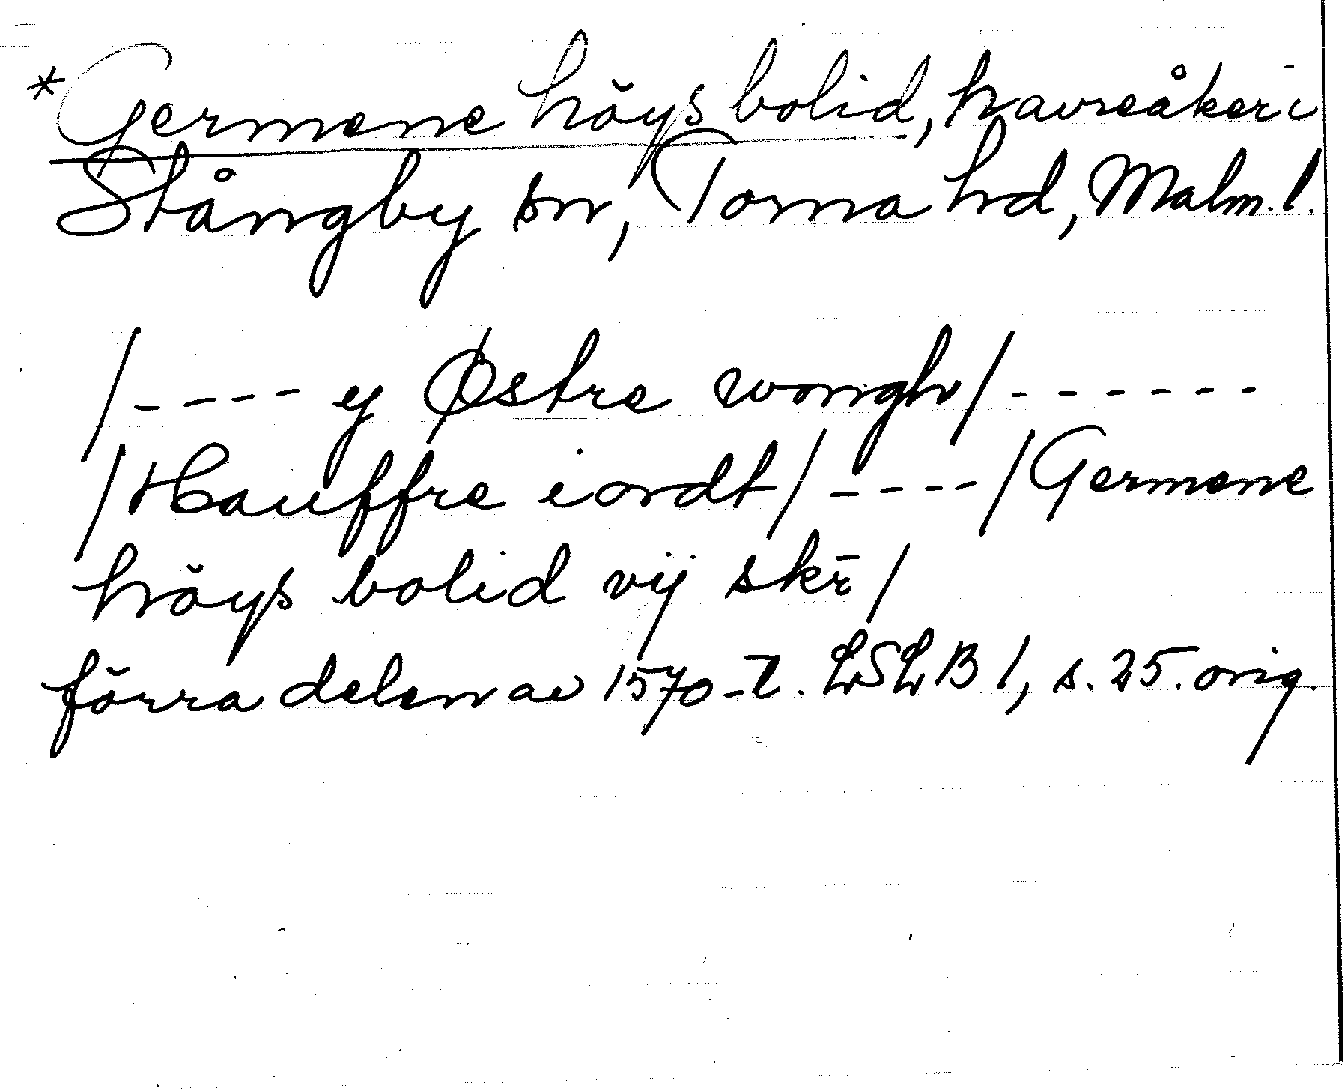 *Germene höys bolid, havreåker i
Stångby sn, Torna hd, Malm. l.
/---- ey Østre wongh/------
/Hauffre iordt/----/Germene
höys bolid vij skr̄/
förra delen av 1570-t. LSLB 1, s. 25. orig.